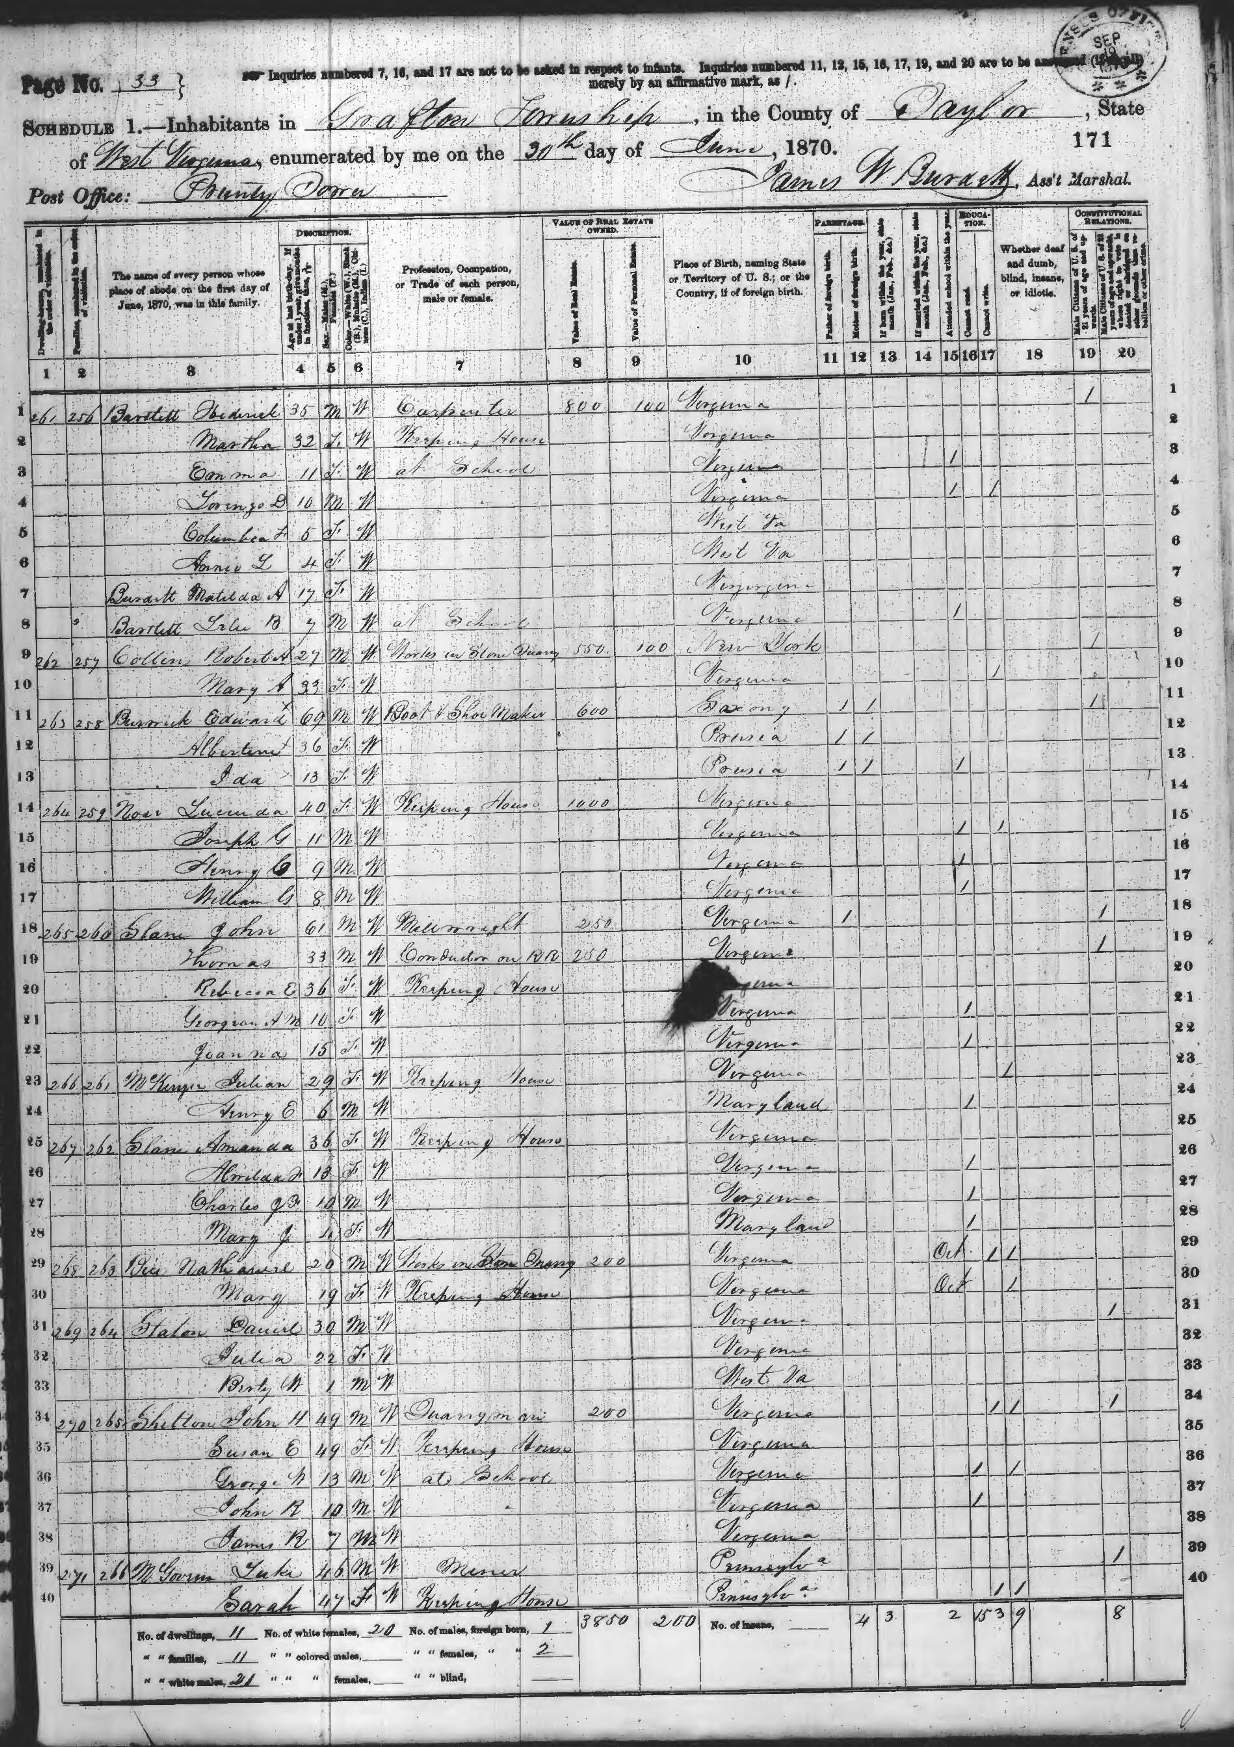 CENSUS OFFICE
SEP
Page No. 33
Inquiries numbered 7, 16, and 17 are not to be asked in respect to infants. Inquiries numbered 11, 12, 15, 16, 17, 19, and 20 are to be answered (if at all)
merely by an affirmative mark, as /.
SCHEDULE 1.—Inhabitants in Grafton Township, in the County of Taylor, State
of West Virginia, enumerated by me on the 30th day of June, 1870.
171
Post Office: Prunty Town
James W Burdett, Ass't Marshal.
DESCRIPTION.
VALUE OF REAL ESTATE OWNED.
PARENTAGE.
EDUCATION.
CONSTITUTIONAL RELATIONS.
The name of every person whose place of abode on the first day of June, 1870, was in this family.
Profession, Occupation, or Trade of each person, male or female.
Value of Real Estate.
Value of Personal Estate.
Place of Birth, naming State or Territory of U. S.; or the Country, if of foreign birth.
Father of foreign birth.
Mother of foreign birth.
If born within the year, state month (Jan., Feb., &c.)
If married within the year, state month (Jan., Feb., &c.)
Attended school within the year.
Cannot read.
Cannot write.
Whether deaf and dumb, blind, insane, or idiotic.
1 2 3 4 5 6 7 8 9 10 11 12 13 14 15 16 17 18 19 20
1 261 256 Bartlett 35 M W Carpenter 800 100 Virginia / 1
2 Martha 32 F W Keeping House Virginia 2
3 Emma 11 F W at School Virginia / 3
4 Lorenzo D 10 M W Virginia / / 4
5 Columbia F 5 F W West Va 5
6 Annie L 4 F W West Va 6
7 Burdett Matilda A 17 F W 7
8 Bartlett B 7 M W at School Virginia / 8
9 262 257 Collins Robert A 27 M W Works in Stone Quarry 550 100 New York / 9
10 Mary A 33 F W Virginia / 10
11 263 258 Edward 69 M W Boot & Shoe Maker 600 Saxony / / / 11
12 36 F W Prusia / / 12
13 Ida 13 F W Prusia / / / 13
14 264 259 Lucinda 40 F W Keeping House 1000 Virginia 14
15 Joseph G 11 M W Virginia / / 15
16 Henry C 9 M W Virginia / 16
17 William G 8 M W Virginia / 17
18 265 260 John 61 M W Millwright 250 Virginia / / 18
19 Thomas 33 M W Conductor on RR 250 Virginia / 19
20 Rebecca E 36 F W Keeping House 20
21 10 F W Virginia / 21
22 Joanna 15 F W Virginia / 22
23 266 261 Julian 29 F W Keeping House Virginia / 23
24 Henry E 6 M W Maryland / 24
25 267 262 Amanda 36 F W Keeping House Virginia 25
26 13 F W Virginia / 26
27 Charles 10 M W Virginia / 27
28 Mary J F W Maryland / 28
29 268 263 20 M W Works in Stone Quarry 200 Virginia Oct / / 29
30 Mary 19 F W Keeping House Virginia Oct / 30
31 269 264 Daniel 30 M W Virginia / 31
32 Julia 22 F W Virginia 32
33 W 1 M W West Va 33
34 270 265 Shelton John H 49 M W Quarryman 200 Virginia / / / 34
35 Susan E 49 F W Keeping House Virginia 35
36 George W 13 M W at School Virginia / / 36
37 John R 10 M W Virginia / 37
38 James R 7 M W Virginia 38
39 271 266 Luke 46 M W Miner / 39
40 Sarah 47 F W Keeping House / / 40
No. of dwellings, 11 No. of white females, 20 No. of males, foreign born, 1 3850 200 No. of insane, 4 3 2 15 3 9 8
" " families, 11 " " colored males, " " females, " " 2
" " white males, 21 " " " females, " " blind,